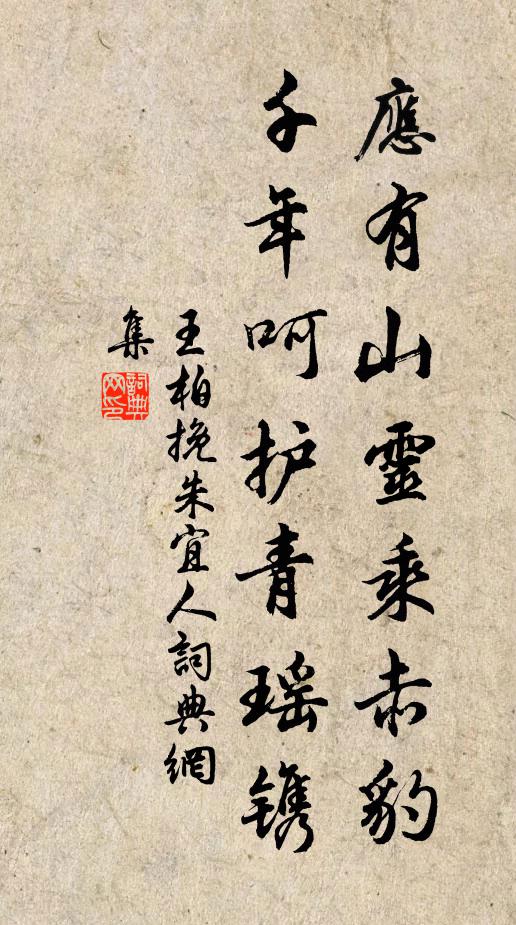 應有山靈乘赤豹
千年呵护青瑶镌
王柏挽朱宜人詞典網
集
詞典網印